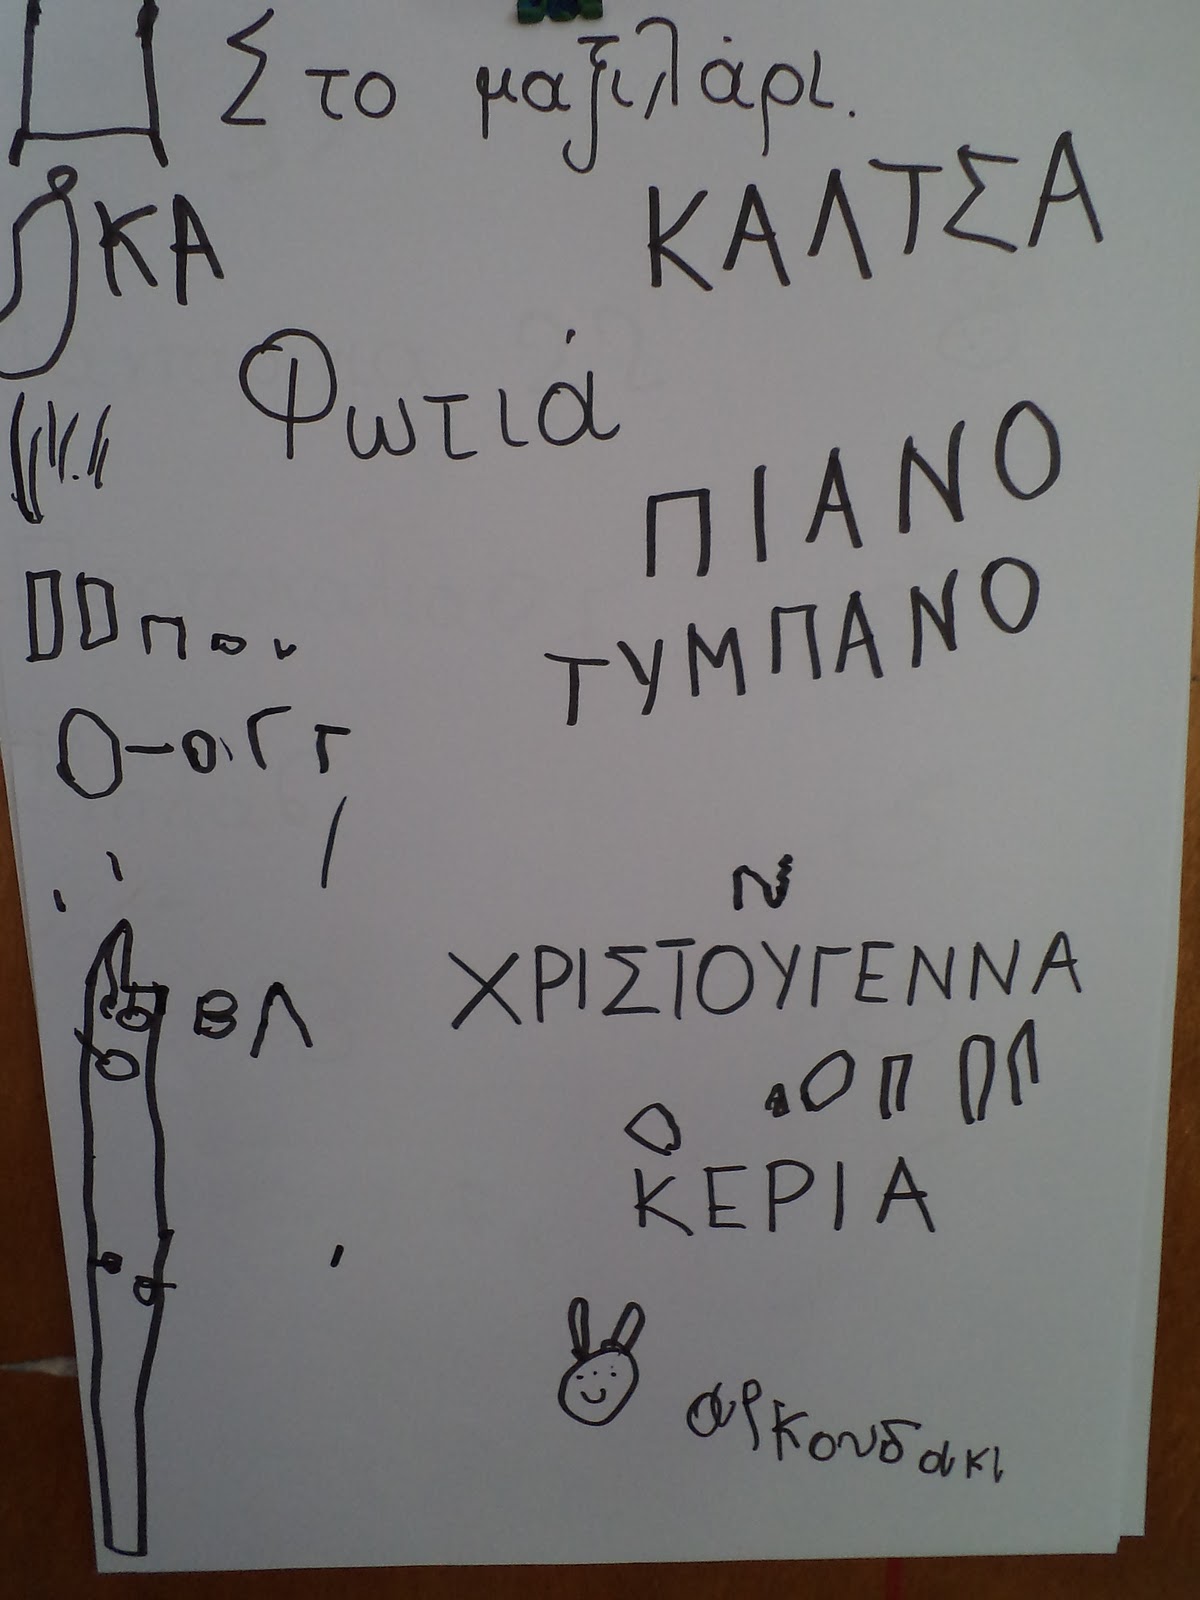 Στο μαξιλάρι.
ΚΑ
ΚΑΛΤΣΑ
Φωτιά
ΠΙΑΝΟ
ΤΥΜΠΑΝΟ
ΧΡΙΣΤΟΥΓΕΝΝΑ
ΒΛ
ΚΕΡΙΑ
αρκουδακι